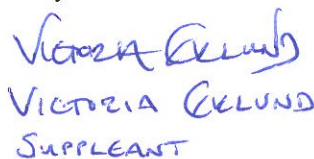 Victoria Eklund
VICTORIA EKLUND
SUPPLEANT